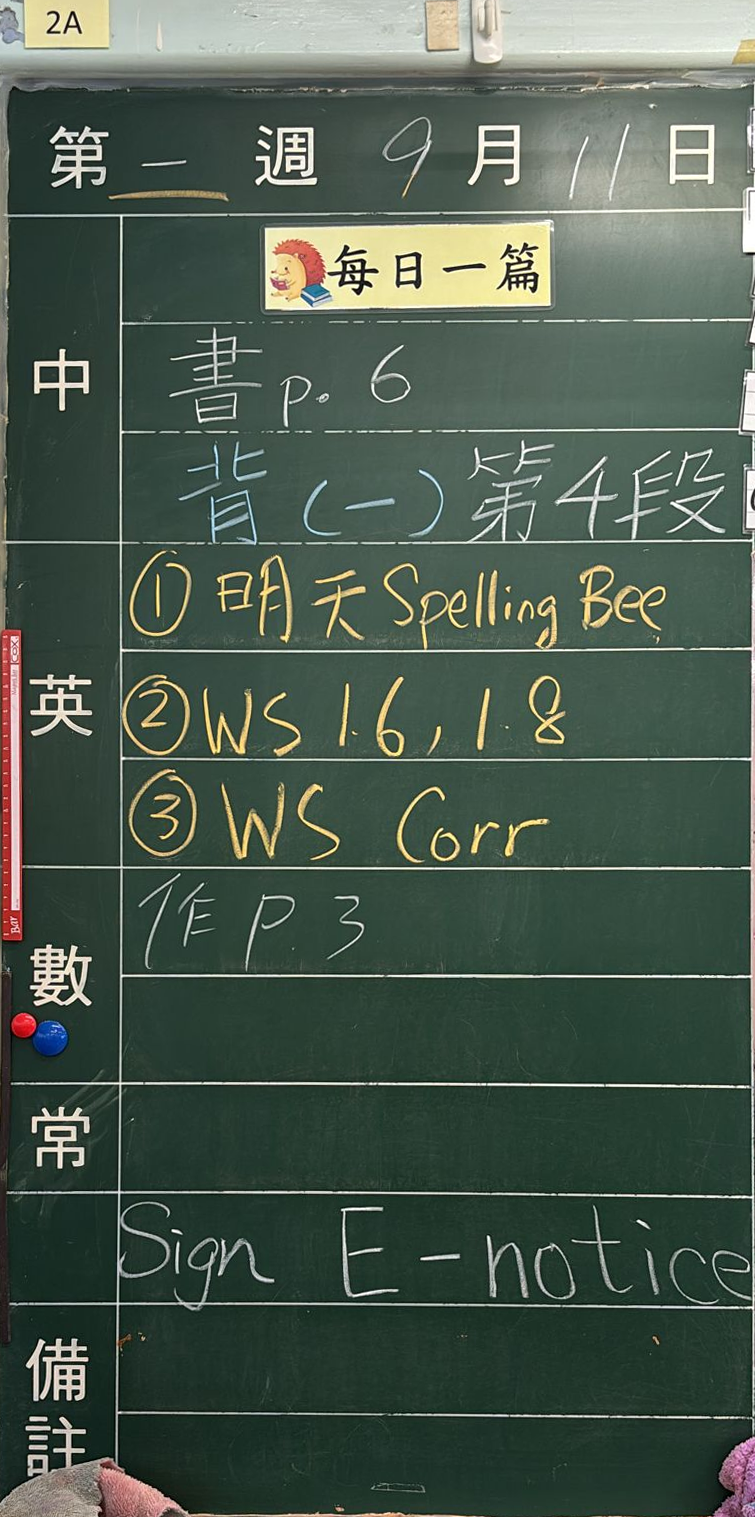 2A
第一週 9月11日
每日一篇
中
書 p. 6
背(一)第4段
英
① 明天 Spelling Bee
② WS 1.6, 1.8
③ WS Corr
數
作 P. 3
常
Sign E-notice
備註